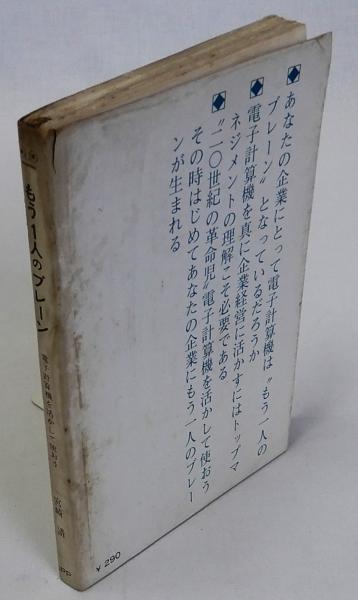 あなたの企業にとって電子計算機は〝もう一人の
ブレーン〟となっているだろうか
電子計算機を真に企業経営に活かすにはトップマ
ネジメントの理解こそ必要である
〝二〇世紀の革命児〟電子計算機を活かして使おう
その時はじめてあなたの企業にもう一人のブレー
ンが生まれる
¥290
もう1人のブレーン
電子計算機を活かして使おう
宮崎 清